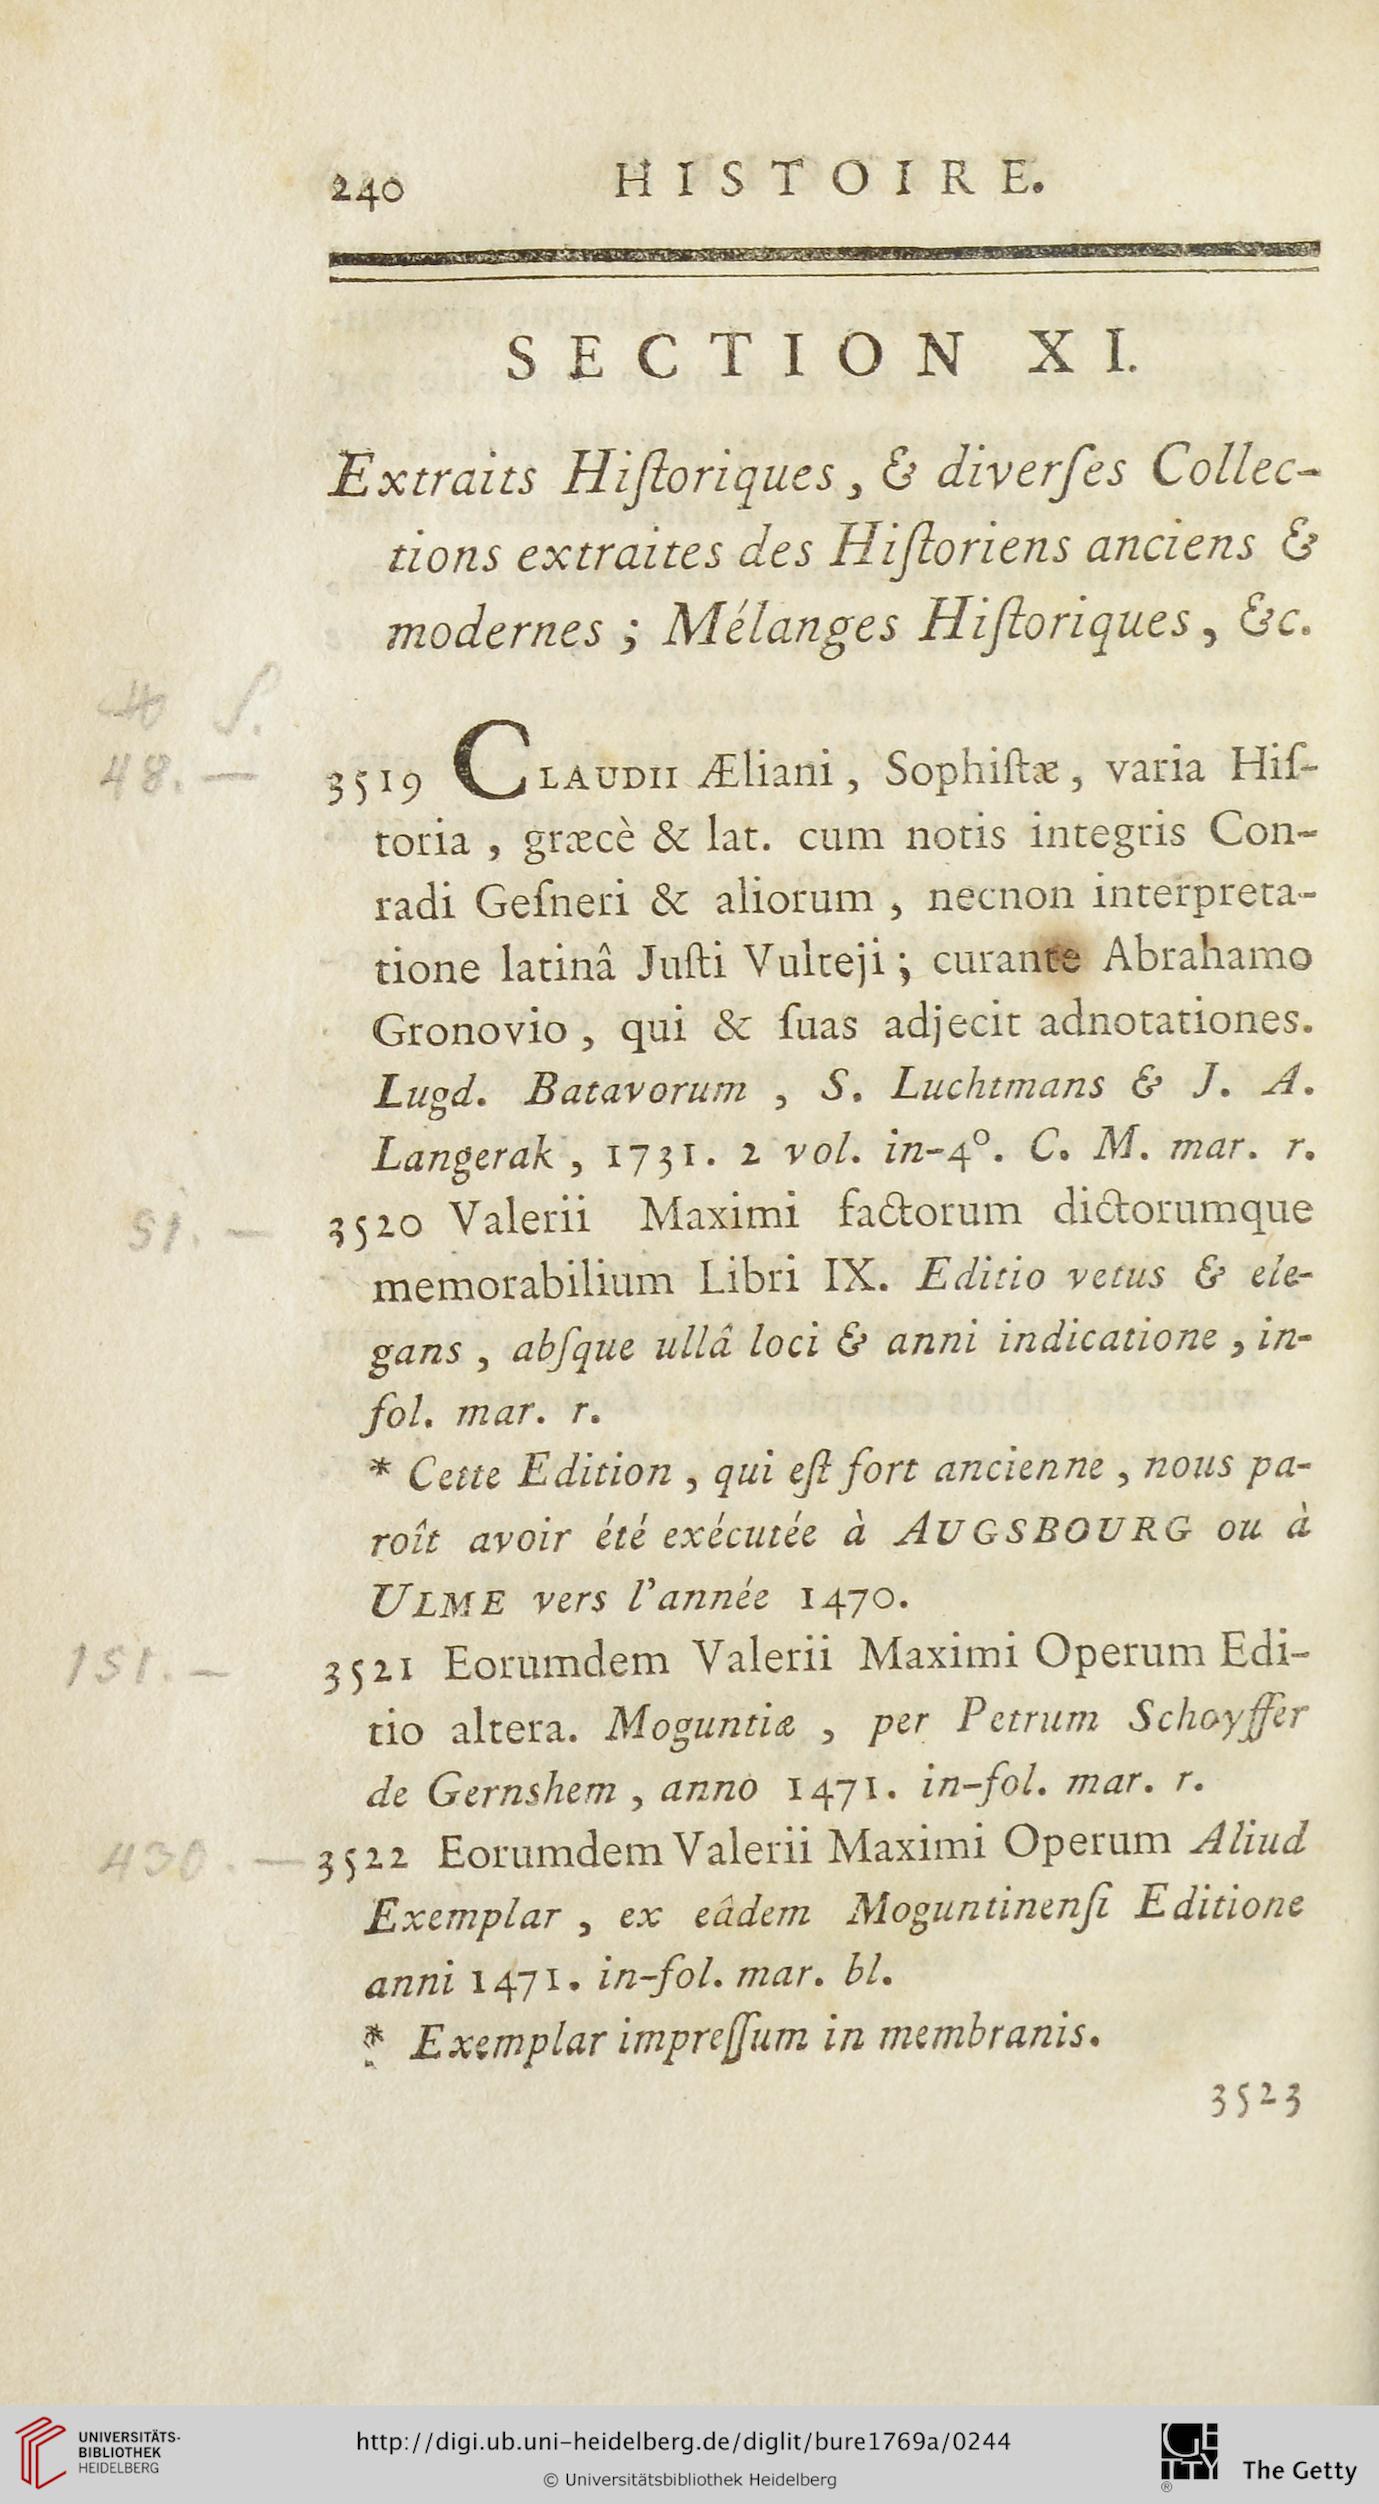 240 HISTOIRE.
SECTION XI.
Extraits Hiſtoriques, & diverſes Collec-
tions extraites des Hiſtoriens anciens &
modernes ; Mélanges Hiſtoriques, &c.
48. —
3519 CLAUDII Æliani, Sophiſtæ, varia Hiſ-
toria, græcè & lat. cum notis integris Con-
radi Geſneri & aliorum, necnon interpreta-
tione latinâ Juſti Vulteji ; curante Abrahamo
Gronovio, qui & ſuas adjecit adnotationes.
Lugd. Batavorum, S. Luchtmans & J. A.
Langerak, 1731. 2 vol. in-4°. C. M. mar. r.
51. —
3520 Valerii Maximi factorum dictorumque
memorabilium Libri IX. Editio vetus & ele-
gans, abſque ullâ loci & anni indicatione, in-
fol. mar. r.
* Cette Edition, qui eſt fort ancienne, nous pa-
roît avoir été exécutée à AUGSBOURG ou à
ULME vers l'année 1470.
151. —
3521 Eorumdem Valerii Maximi Operum Edi-
tio altera. Moguntiæ, per Petrum Schoyffer
de Gernshem, anno 1471. in-fol. mar. r.
430. —
3522 Eorumdem Valerii Maximi Operum Aliud
Exemplar, ex eâdem Moguntinenſi Editione
anni 1471. in-fol. mar. bl.
* Exemplar impreſſum in membranis.
3523
UNIVERSITÄTS-
BIBLIOTHEK
HEIDELBERG
http://digi.ub.uni-heidelberg.de/diglit/bure1769a/0244
© Universitätsbibliothek Heidelberg
GETTY
®
The Getty